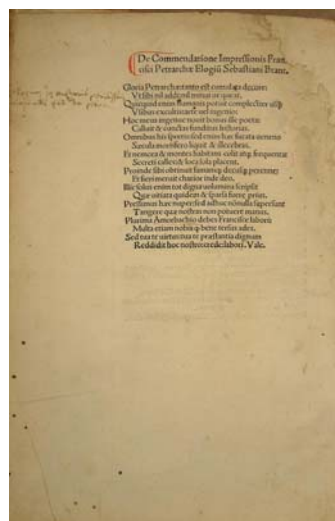 De Commendatione Impressionis Fran,
cisci Petrarchæ Elogiũ Sebastiani Brant.
Gloria Petrarchæ tanto est cumulata decore:
Vt sibi nil addi: nil minui ut queat.
Quicquid enim humanis potuit complectier
Viribus excultus arte uel ingenio:
Hoc meus ingenue nouit bonus ille poeta:
Calluit & cunctas funditus historias.
Omnibus his spretis sed enim hæc fucata uenena
Sæcula mortifero liquit & illecebras.
Et nemora & montes habitans colit
Secreti calles & loca sola placent.
Proinde sibi obtinuit famamq; decusq; perenne:
Et fieri meruit charior inde deo.
Ille solus enim tot digna uolumina scripsit
Quæ uitiata quidem & sparsa fuere prius.
Pressimus hæc nuper: sed adhuc nõnulla supersunt
Tangere quæ nostras non potuere manus.
Plurima Amorbachio debes Francisce labori:
Multa etiam nobis q bene tersus ades.
Sed tua te uirtus: tua te præstantia dignum
Reddidit hoc nostro crede labori. Vale.